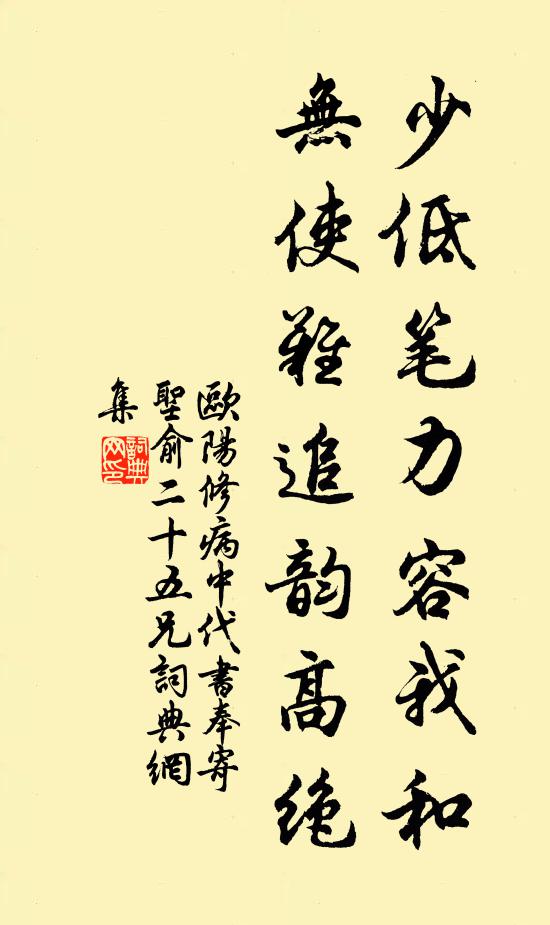 少低笔力容我和
無使難追韵高绝
歐陽修病中代書奉寄
聖俞二十五兄詞典網
集
詞典
网印